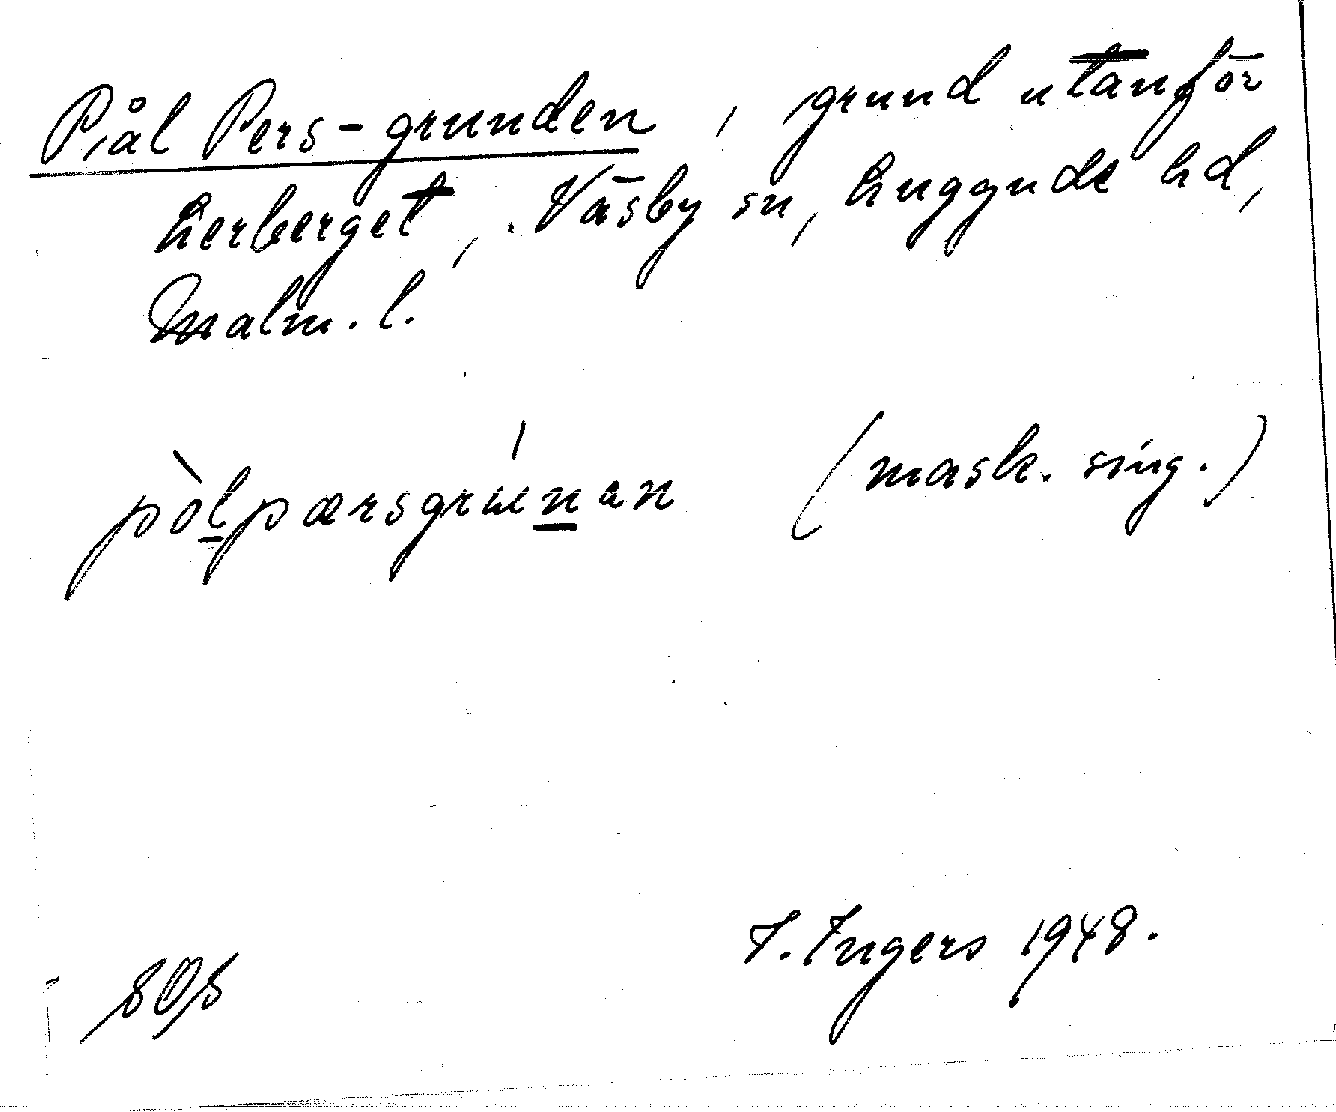 Pål Pers-grunden, grund utanför
Lerberget, Väsby sn, Luggude hd,
Malm. l.
pòlpærsgrúnan (mask. sing.)
I. Ingers 1948.
SOS